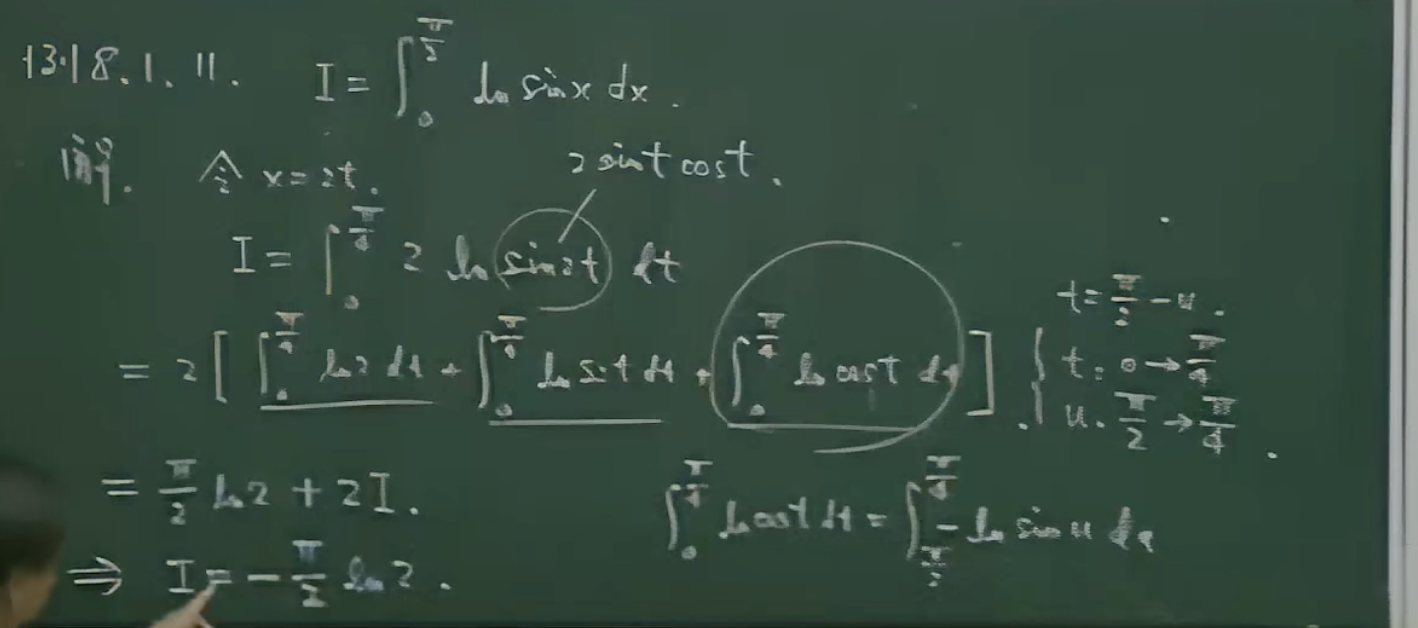 13.18.1.11. I = ∫₀^{π/2} ln sinx dx.
解. 令 x=2t.
2 sint cost.
I = ∫₀^{π/4} 2 ln sin2t dt
= 2 [ ∫₀^{π/4} ln2 dt + ∫₀^{π/4} ln sint dt + ∫₀^{π/4} ln cost dt ].
t = π/2 - u.
{ t: 0 → π/4
u. π/2 → π/4.
= π/2 ln2 + 2I.
∫₀^{π/4} ln cost dt = ∫_{π/2}^{π/4} - ln sin u du
⇒ I = - π/2 ln 2.